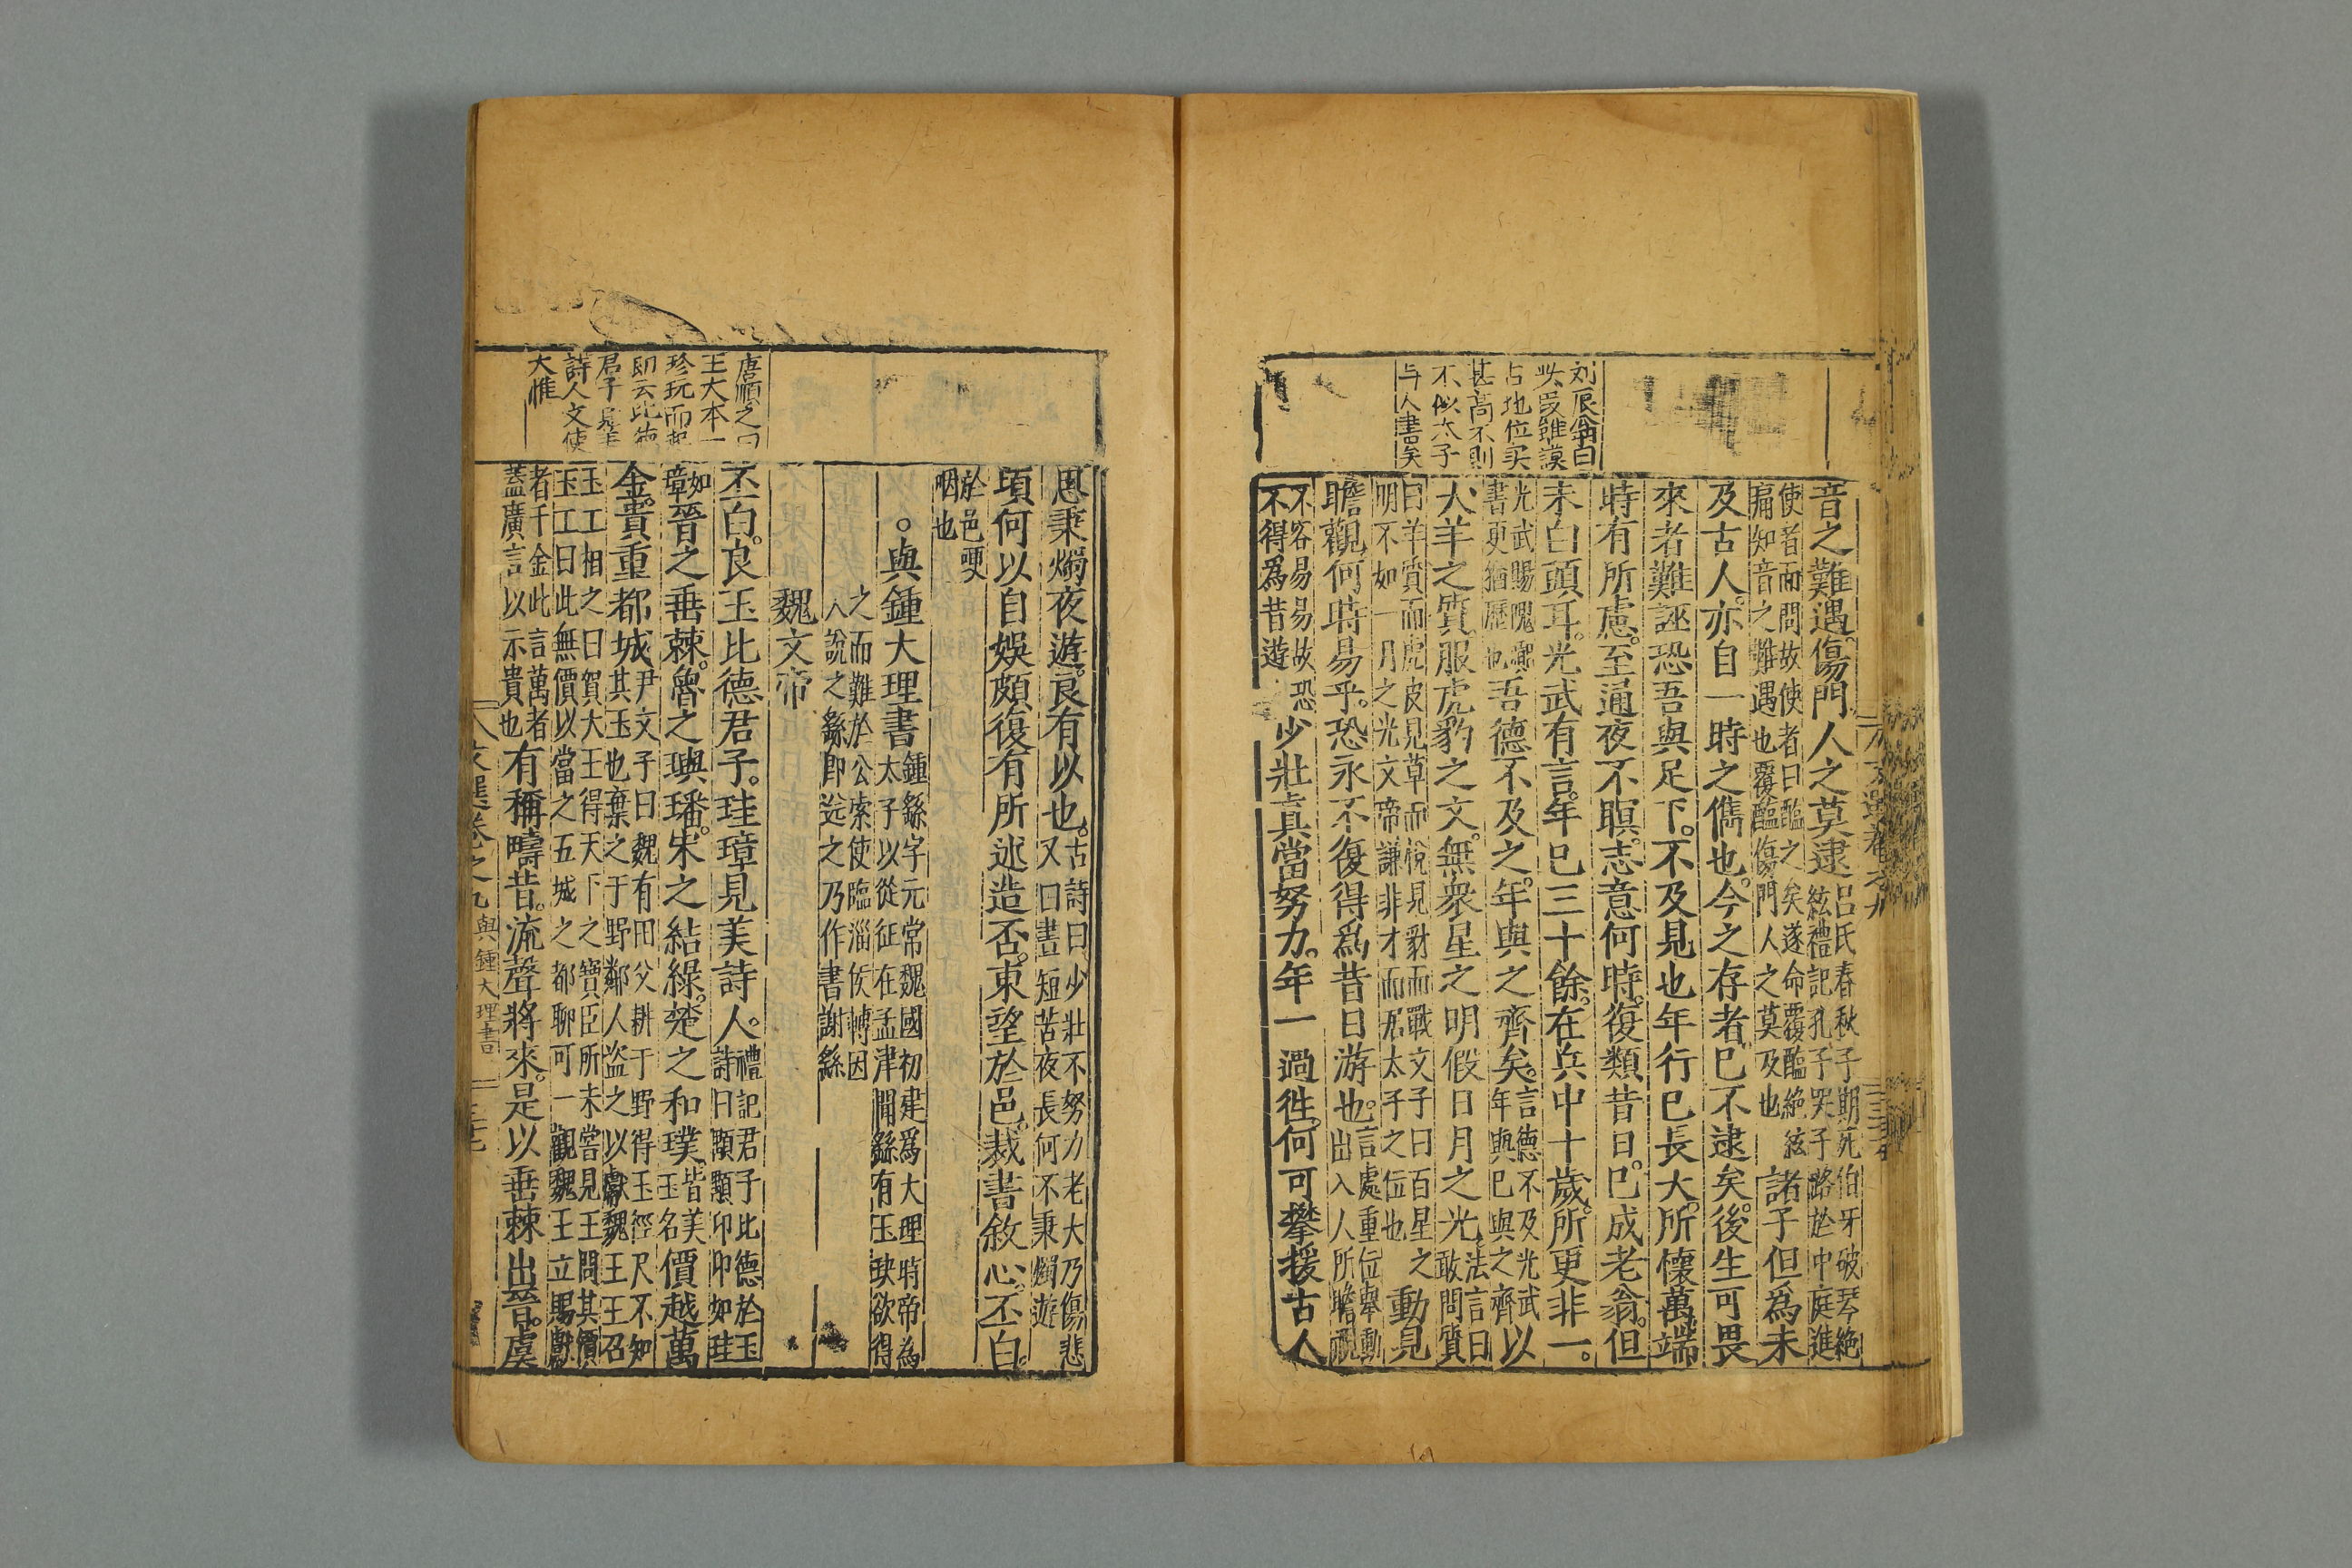 音之難遇傷門人之莫逮
呂氏春秋子期死伯牙破琴絶
絃禮記孔子哭子路於中庭進
使者而問故使者曰醢之矣遂命覆醢絶絃
痛知音之難遇也覆醢傷門人之莫及也
諸子但爲未
及古人亦自一時之儁也今之存者已不逮矣後生可畏
來者難誣恐吾與足下不及見也年行已長大所懷萬端
時有所慮至通夜不瞑志意何時復類昔日已成老翁但
未白頭耳光武有言年已三十餘在兵中十歲所更非一
光武賜隗囂
書更猶歷也
吾德不及之年與之齊矣
言德不及光武
年與已與之齊
以
犬羊之質服虎豹之文無衆星之明假日月之光
法言曰
敢問質
曰羊質而虎皮見草而悅見豺而戰文子曰百星之
明不如一月之光文帝謙非才而居太子之位也
動見
瞻觀何時易乎恐永不復得爲昔日游也
言處重位舉動
出入人所瞻覩
不容易易故恐
不得爲昔遊
少壯真當努力年一過往何可攀援古人
刘辰翁曰
此叚雖謨
占地位实
甚高不則
不似太子
与人書矣
思秉燭夜遊良有以也
古詩曰少壯不努力老大乃傷悲
又曰晝短苦夜長何不秉燭遊
頃何以自娛頗復有所述造否東望於邑裁書敘心丕白
於邑哽
咽也
與鍾大理書
鍾繇字元常魏國初建爲大理時帝為
太子以從征在孟津聞繇有玉玦欲得
之而難於公索使臨淄侯轉因
人說之繇即送之乃作書謝繇
魏文帝
丕白良玉比德君子珪璋見美詩人
禮記君子比德於玉
詩曰顒顒卬卬如珪
如
璋
晉之垂棘魯之璵璠宋之結綠楚之和璞
皆美
玉名
價越萬
金貴重都城
尹文子曰魏有田父耕于野得玉徑尺不知
其玉也棄之于野鄰人盜之以獻魏王王召
玉工相之曰賀大王得天下之寶臣所未嘗見王問其價
玉工曰此無價以當之五城之都聊可一觀魏王立賜獻
者千金此言萬者
蓋廣言以示貴也
有稱疇昔流聲將來是以垂棘出晉虞
唐順之曰
王大本一
珍玩而起
即云比德
君子見美
詩人文使
大雅
文選卷之九
與鍾大理書